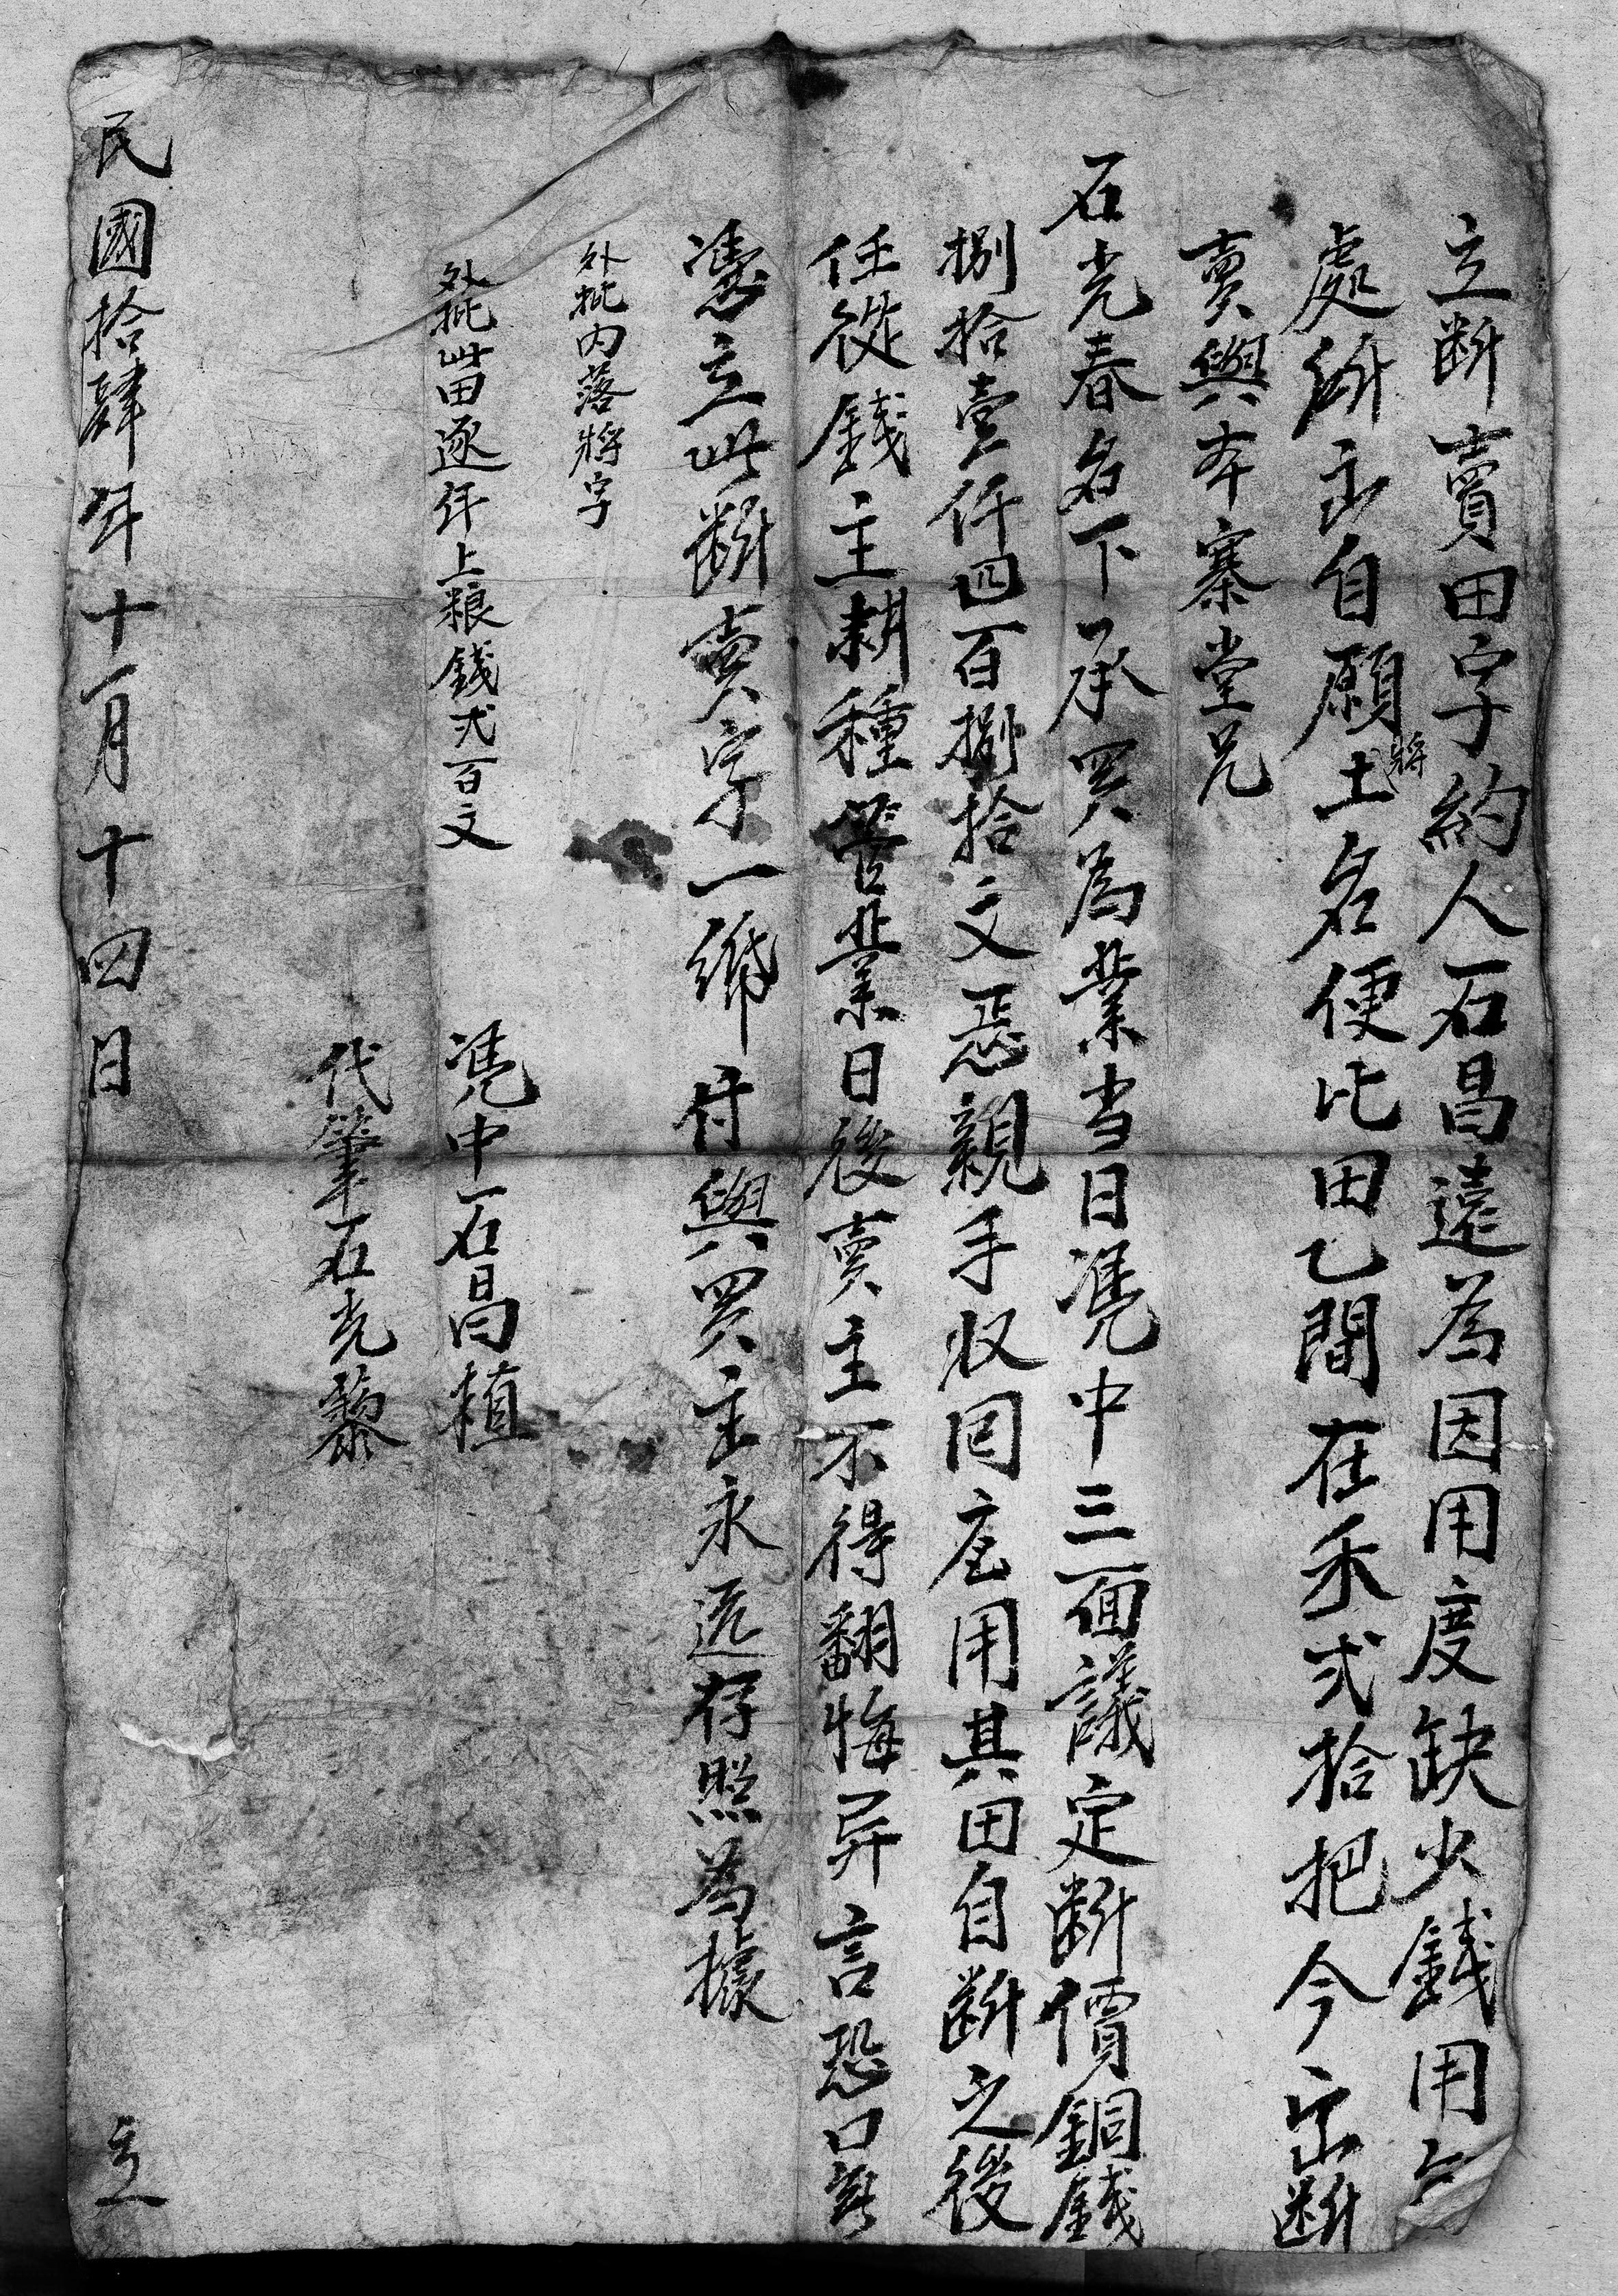 立断賣田字約人石昌遠為因用度缺少錢用
處所出自願將土名便比田乙間在禾弍拾把今當断
賣與本寨堂兄
石光春名下承買為業当日凴中三面議定断價銅錢
捌拾壹仟四百捌拾文恶親手収囬應用其田自断之後
任從錢主耕種管業日後賣主不得翻悔异言恐口無
憑立此断賣字一紙付與買主永远存照為據
外批内落將字
外批此田逐年上粮錢弍百文
凴中石昌植
代筆石光藜
民國拾肆年十一月十四日 立